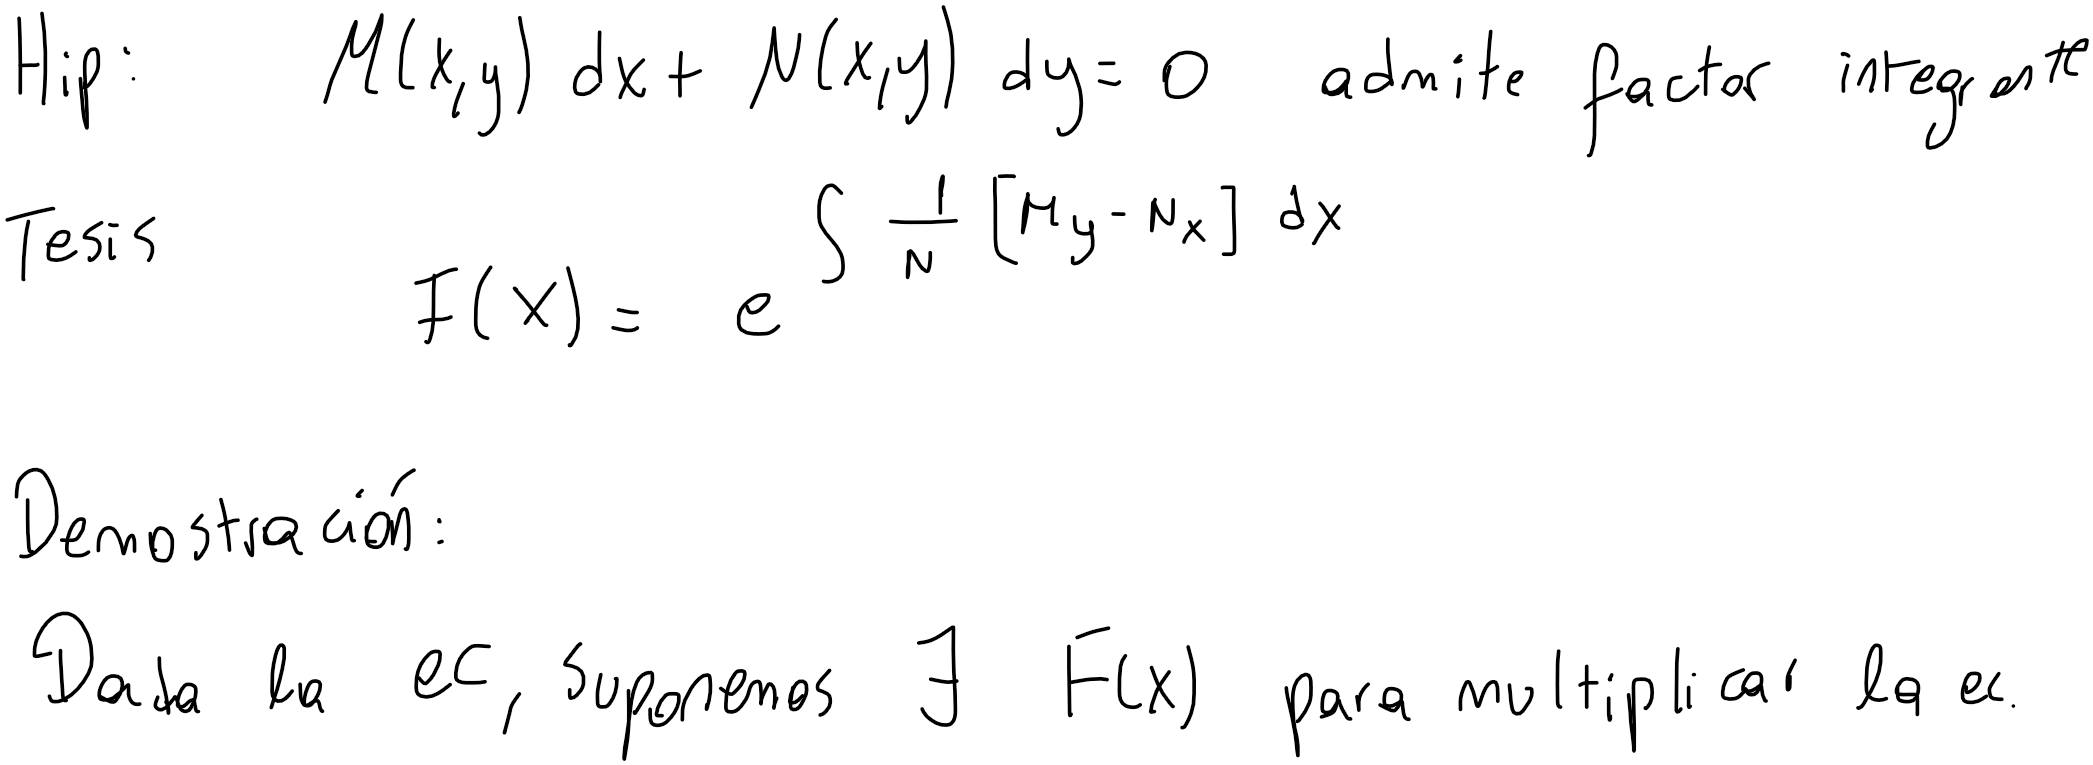 Hip: M(x,y) dx + N(x,y) dy = 0 admite factor integrante
Tesis F(x) = e^{∫ \frac{1}{N} [My - Nx] dx}
Demostración:
Dada la ec, suponemos ∃ F(x) para multiplicar la ec.